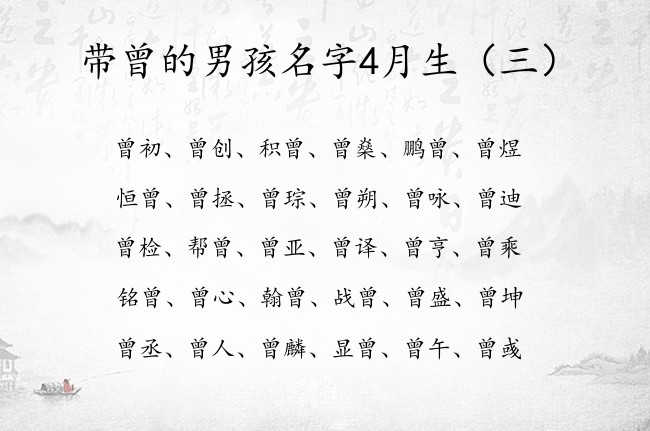 带曾的男孩名字4月生（三）
曾初、曾创、积曾、曾燊、鹏曾、曾煜
恒曾、曾拯、曾琮、曾朔、曾咏、曾迪
曾检、帮曾、曾亚、曾译、曾亨、曾乘
铭曾、曾心、翰曾、战曾、曾盛、曾坤
曾丞、曾人、曾麟、显曾、曾午、曾彧